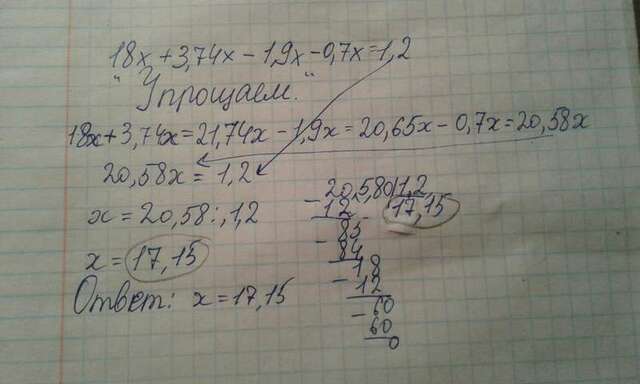 18x + 3,74x - 1,9x - 0,7x = 1,2
"Упрощаем."
18x + 3,74x = 21,74x - 1,9x = 20,65x - 0,7x = 20,58x
20,58x = 1,2
x = 20,58 : 1,2
x = 17,15
Ответ: x = 17,15
20,580 | 1,2
17,15
- 12
- 85
84
- 18
12
- 60
60
0